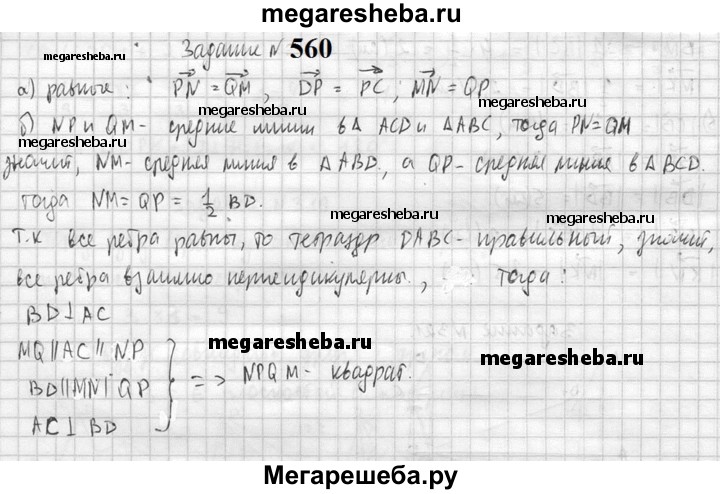 megaresheba.ru
Задание N 560
megaresheba.ru
megaresheba.ru
а) равные: PN = QM, DP = PC; MN = QP
megaresheba.ru
megaresheba.ru
б) NP и QM- средние линии в Δ ACD и ΔABC, тогда PN=QM
значит, NM- средняя линия в ΔABD, а QP- средняя линия в ΔBCD.
megaresheba.ru
тогда NM= QP = 1/2 BD.
megaresheba.ru
megaresheba.ru
Т.к все ребра равны, то тетраэдр DABC- правильный, значит,
все ребра взаимно перпендикулярны, тогда:
BD⊥AC
megaresheba.ru
MQ||AC||NP
megaresheba.ru
BD||MN||QP => NPQM- квадрат.
AC⊥BD
Мегарешеба.ру